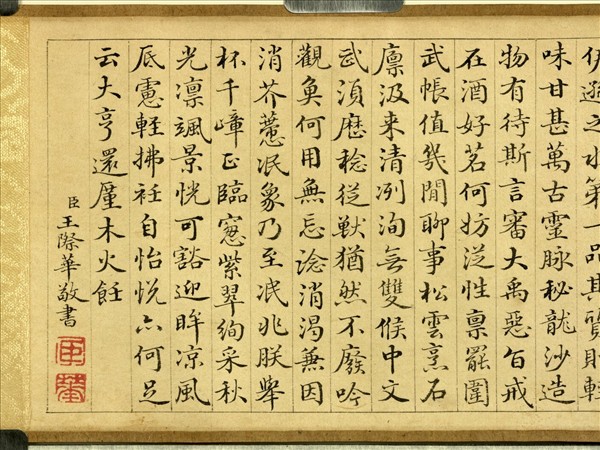 伊遜之水第一品其質則輕
味甘甚萬古靈脉秘龍沙造
物有待斯言審大禹惡旨戒
在酒好茗何妨泛性禀罷圍
武帳值幾閒聊事松雲烹石
廪汲来清冽洵無雙候中文
武湏歷稔從猷猶然不廢吟
觀奐何用無忘諗消渴無因
消芥薏泯象乃至泯兆朕舉
杯千嶂正臨窓紫翠絢采秋
光凛颯景恍可豁迎眸凉風
底憲軽拂衽自怡悅亦何足
云大亨還廑木火飪
臣王際華敬書